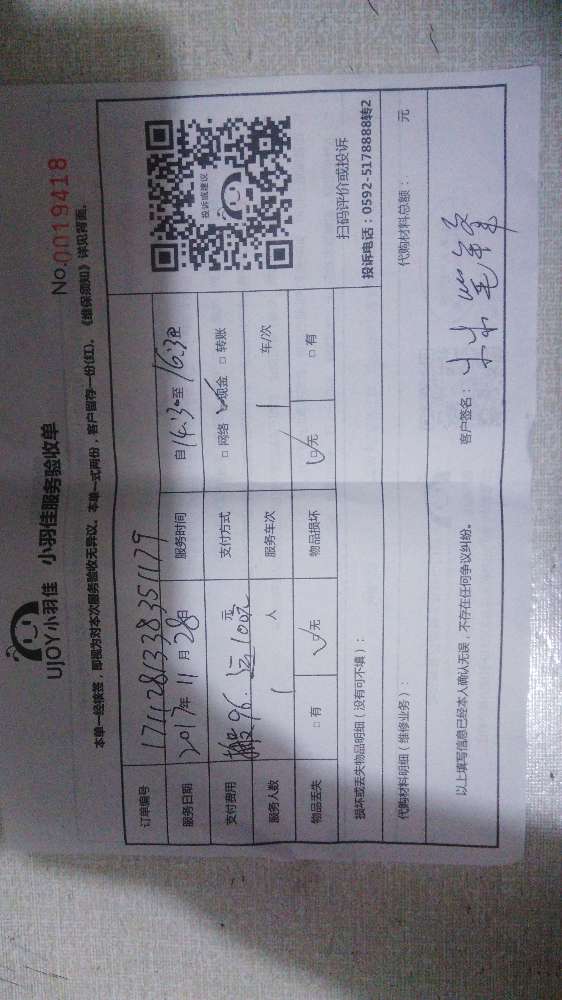 UJOY小羽佳 小羽佳服务验收单
No.0019418
本单一经接签，即视为对本次服务验收无异议。本单一式两份，客户留存一份(红)。《维保须知》详见背面。
订单编号 171128133835 1179
服务日期 2017年 11月 28日 服务时间 自14:30至16:30
支付费用 搬96. 运100元 元 支付方式 □ 网络 ☑ 现金 □ 转账
服务人数 1 人 服务车次 1 车/次
物品丢失 □ 有 ☑ 无 物品损坏 ☑ 无 □ 有
投诉或建议
扫码评价或投诉
投诉电话：0592-5178888转2
损坏或丢失物品明细（没有可不填）：
代购材料明细（维修业务）： 代购材料总额： 元
以上填写信息已经本人确认无误，不存在任何争议纠纷。 客户签名：